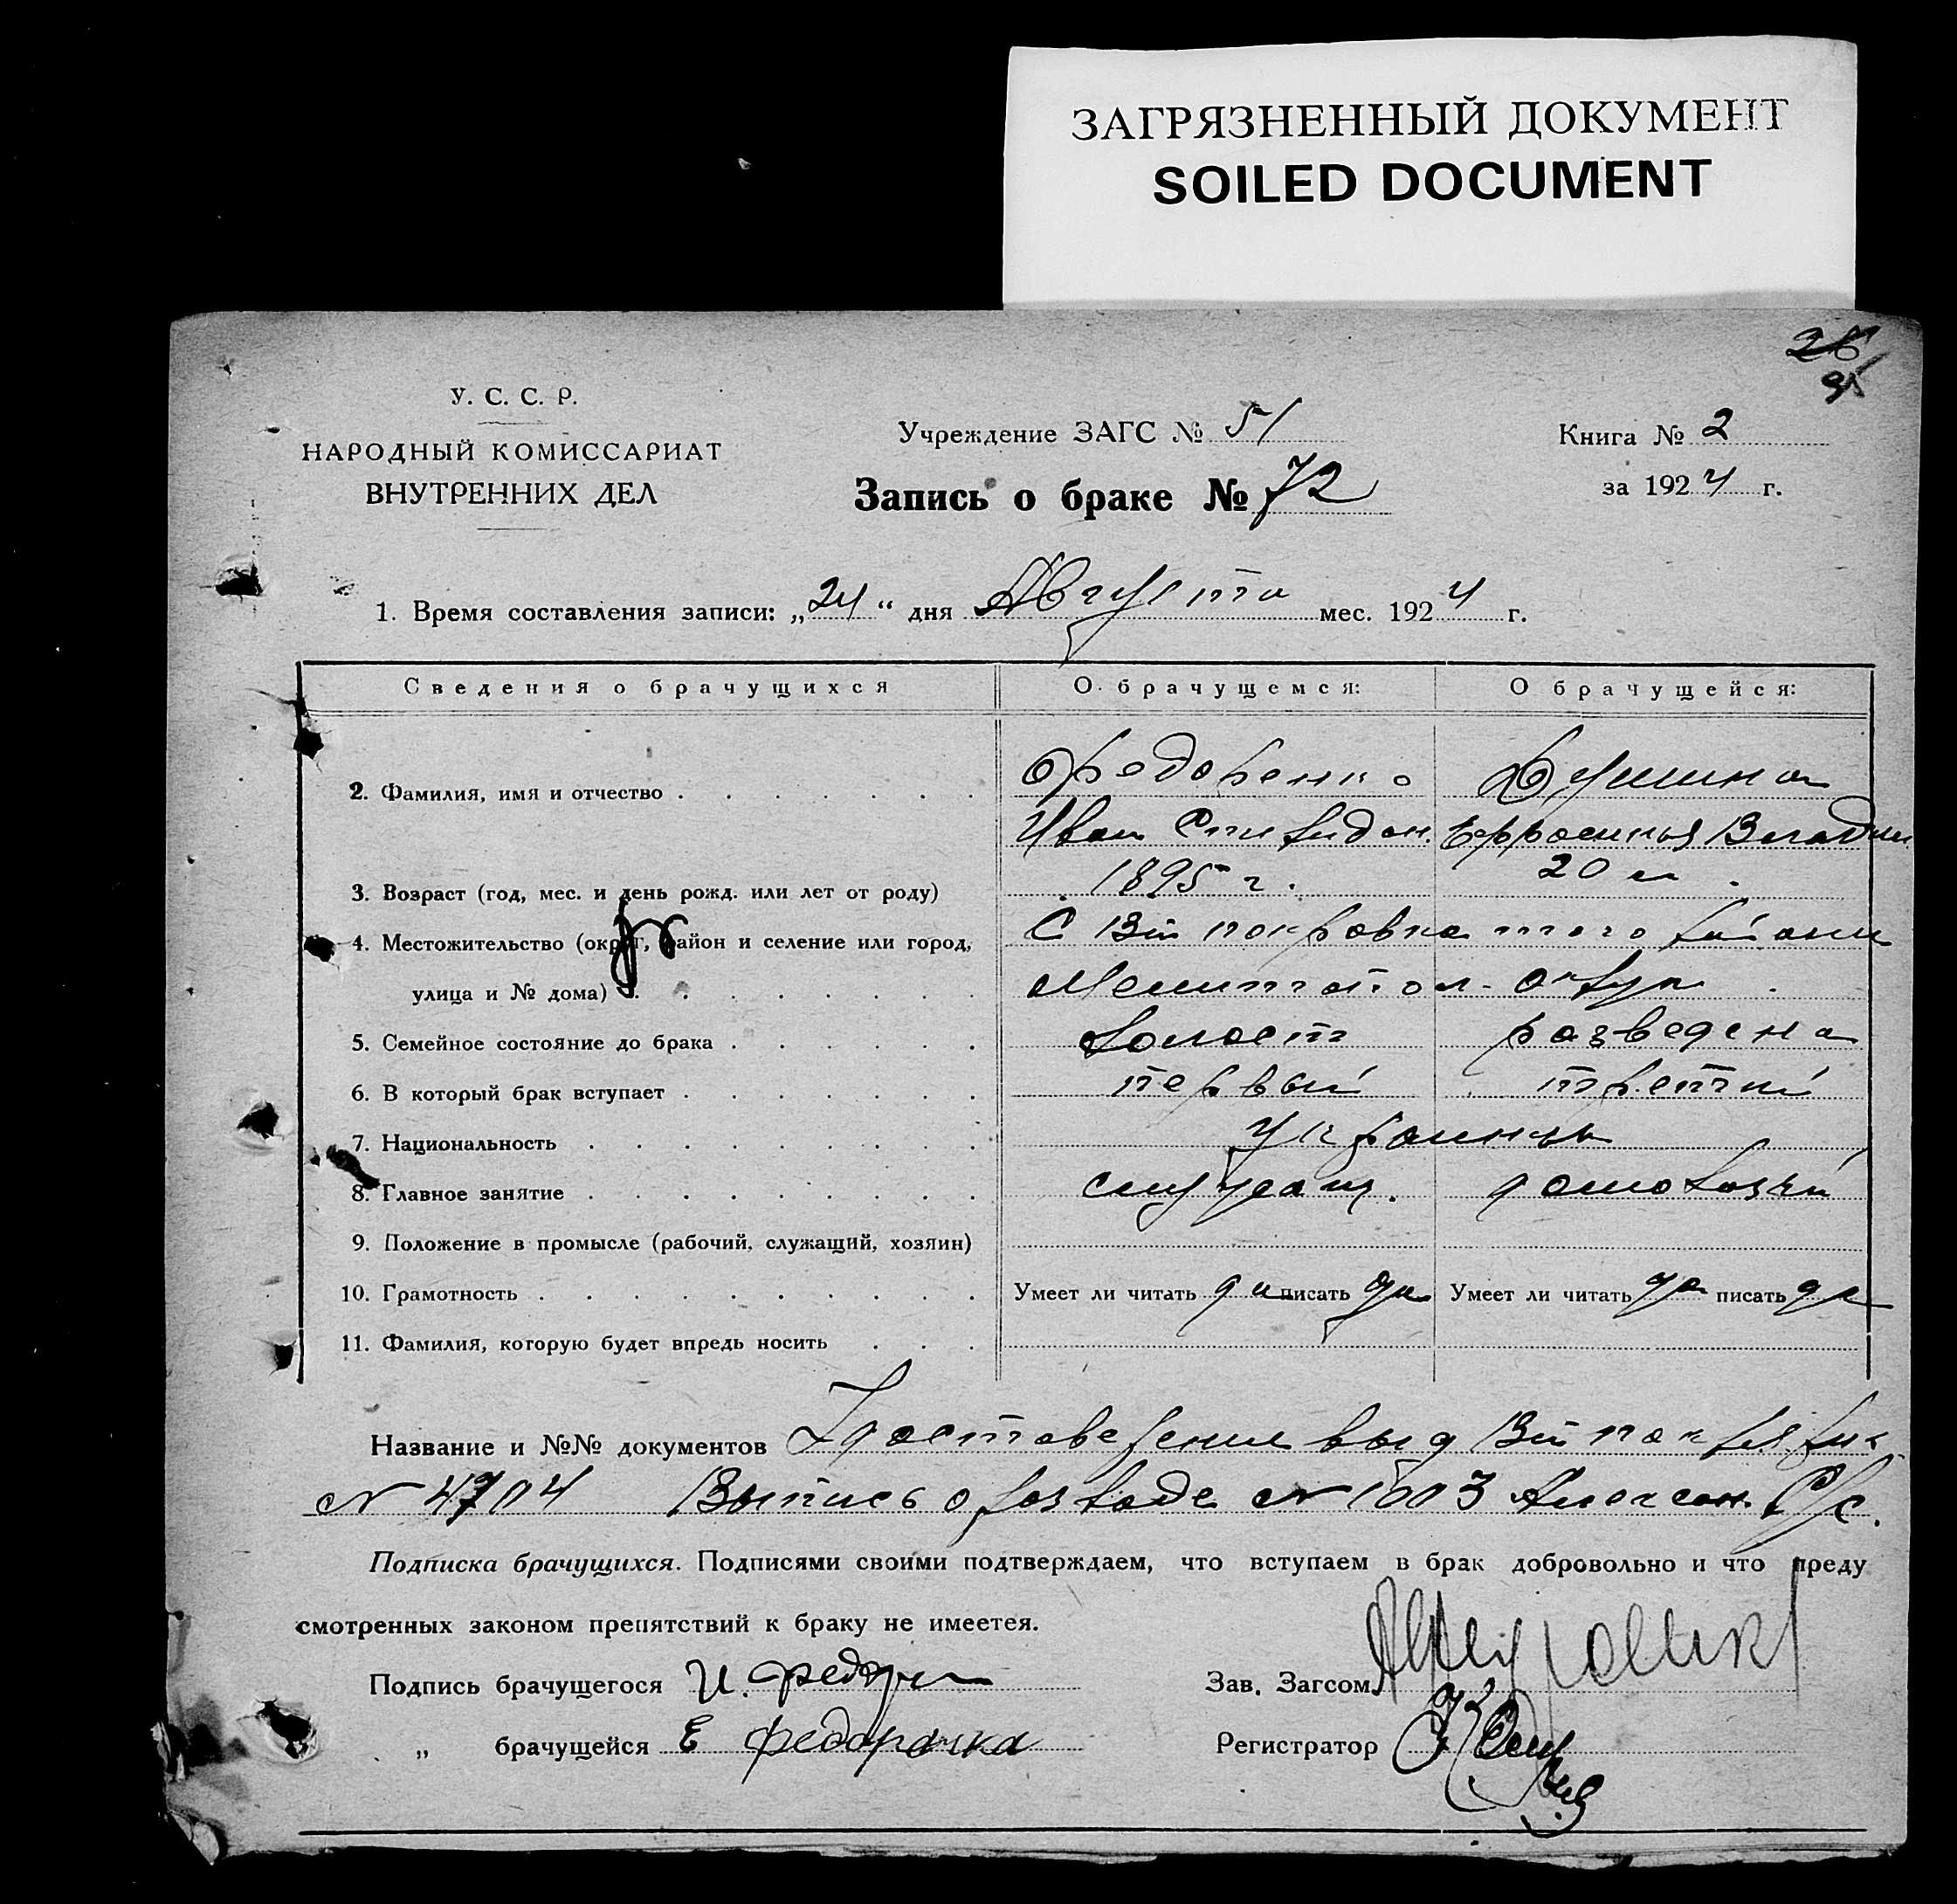 ЗАГРЯЗНЕННЫЙ ДОКУМЕНТ
SOILED DOCUMENT
26
95
У. С. С. Р.
НАРОДНЫЙ КОМИССАРИАТ
ВНУТРЕННИХ ДЕЛ
Учреждение ЗАГС № 51
Запись о браке № 72
Книга № 2
за 1924 г.
1. Время составления записи: „24“ дня Августа мес. 1924 г.
Сведения о брачущихся О брачущемся: О брачущейся:
2. Фамилия, имя и отчество Федоренко
Иван Спиридон. Ефросинья Владим.
3. Возраст (год, мес. и день рожд. или лет от роду) 1895 г. 20 л
4. Местожительство (округ, район и селение или город, С Вй покровка того района
улица и № дома) Мелитопол. округа
5. Семейное состояние до брака холост разведена
6. В который брак вступает первый третий
7. Национальность Украинцы
8. Главное занятие служащ. домохозяй
9. Положение в промысле (рабочий, служащий, хозяин)
10. Грамотность Умеет ли читать да писать да Умеет ли читать да писать да
11. Фамилия, которую будет впредь носить
Название и №№ документов Удостоверение выд Вй покр
N 4704 Выпись о разводе N 1003 С/с.
Подписка брачущихся. Подписями своими подтверждаем, что вступаем в брак добровольно и что преду
смотренных законом препятствий к браку не имеетея.
Подпись брачущегося И. Федор
„ брачущейся Е Федоренка
Зав. Загсом
Регистратор